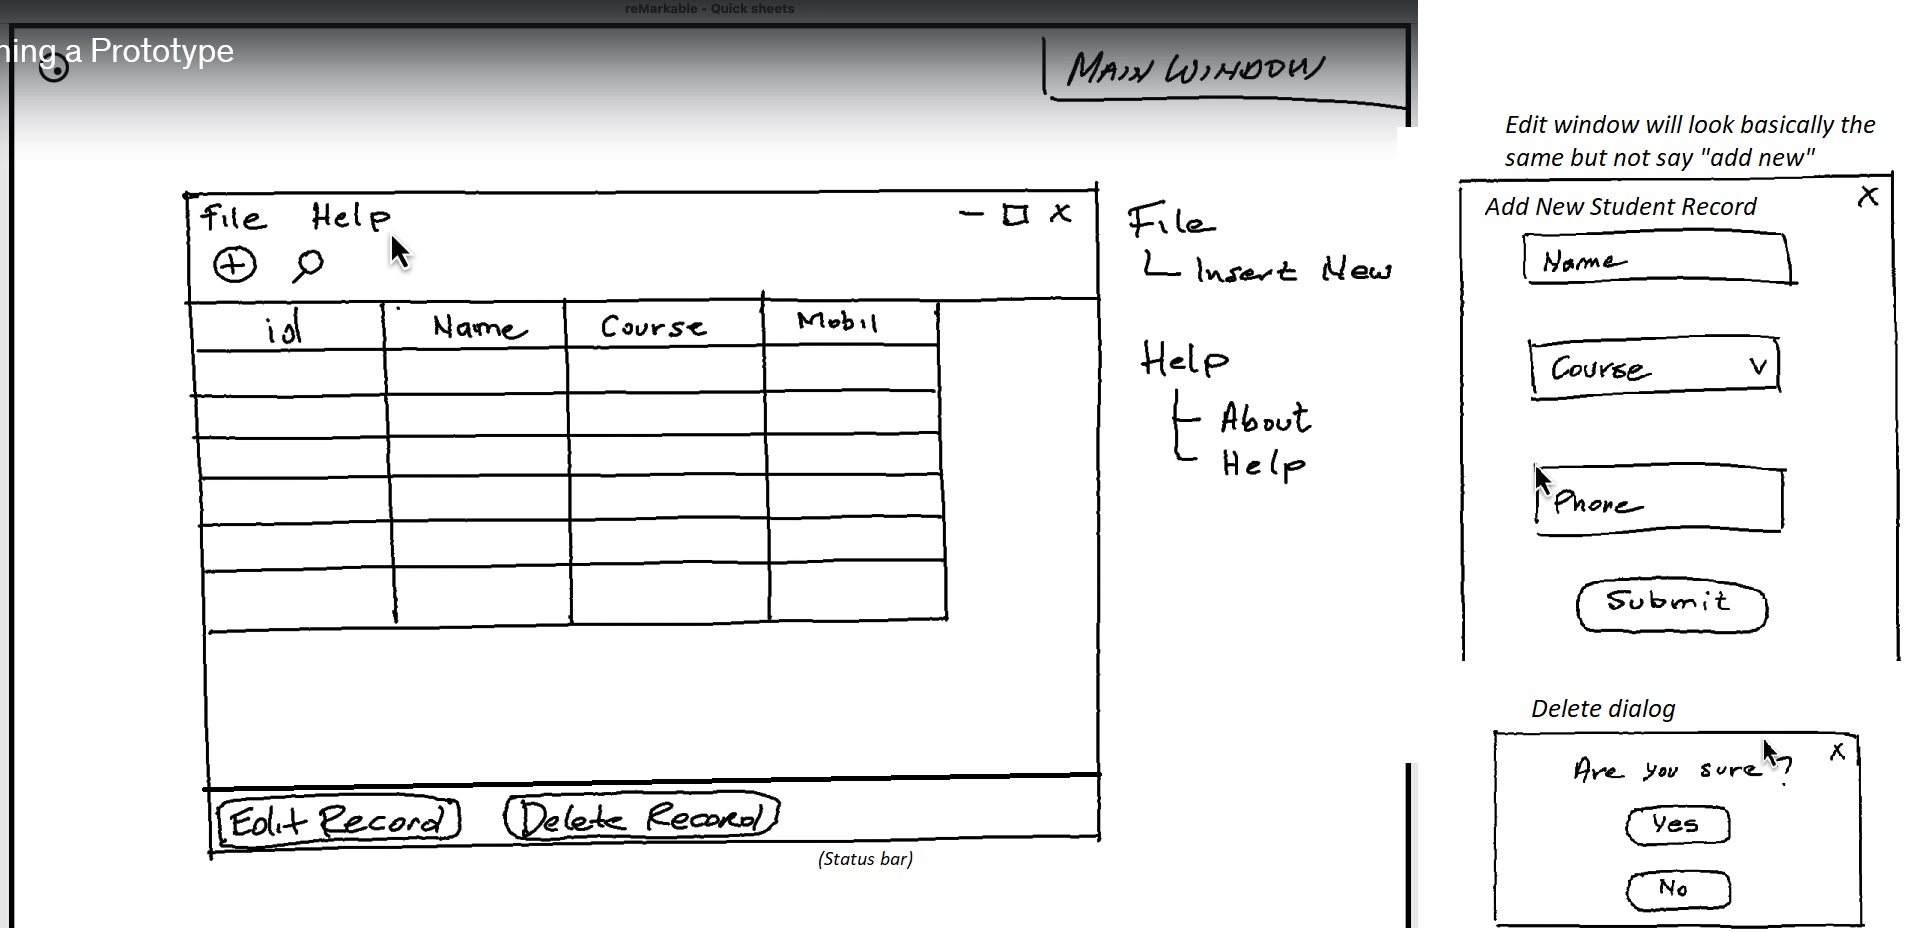 reMarkable - Quick sheets
ning a Prototype
MAIN WINDOW
File Help
id Name Course Mobil
Edit Record Delete Record
(Status bar)
File
Insert New
Help
About
Help
Edit window will look basically the
same but not say "add new"
X
Add New Student Record
Name
Course V
Phone
Submit
Delete dialog
X
Are you sure?
Yes
No